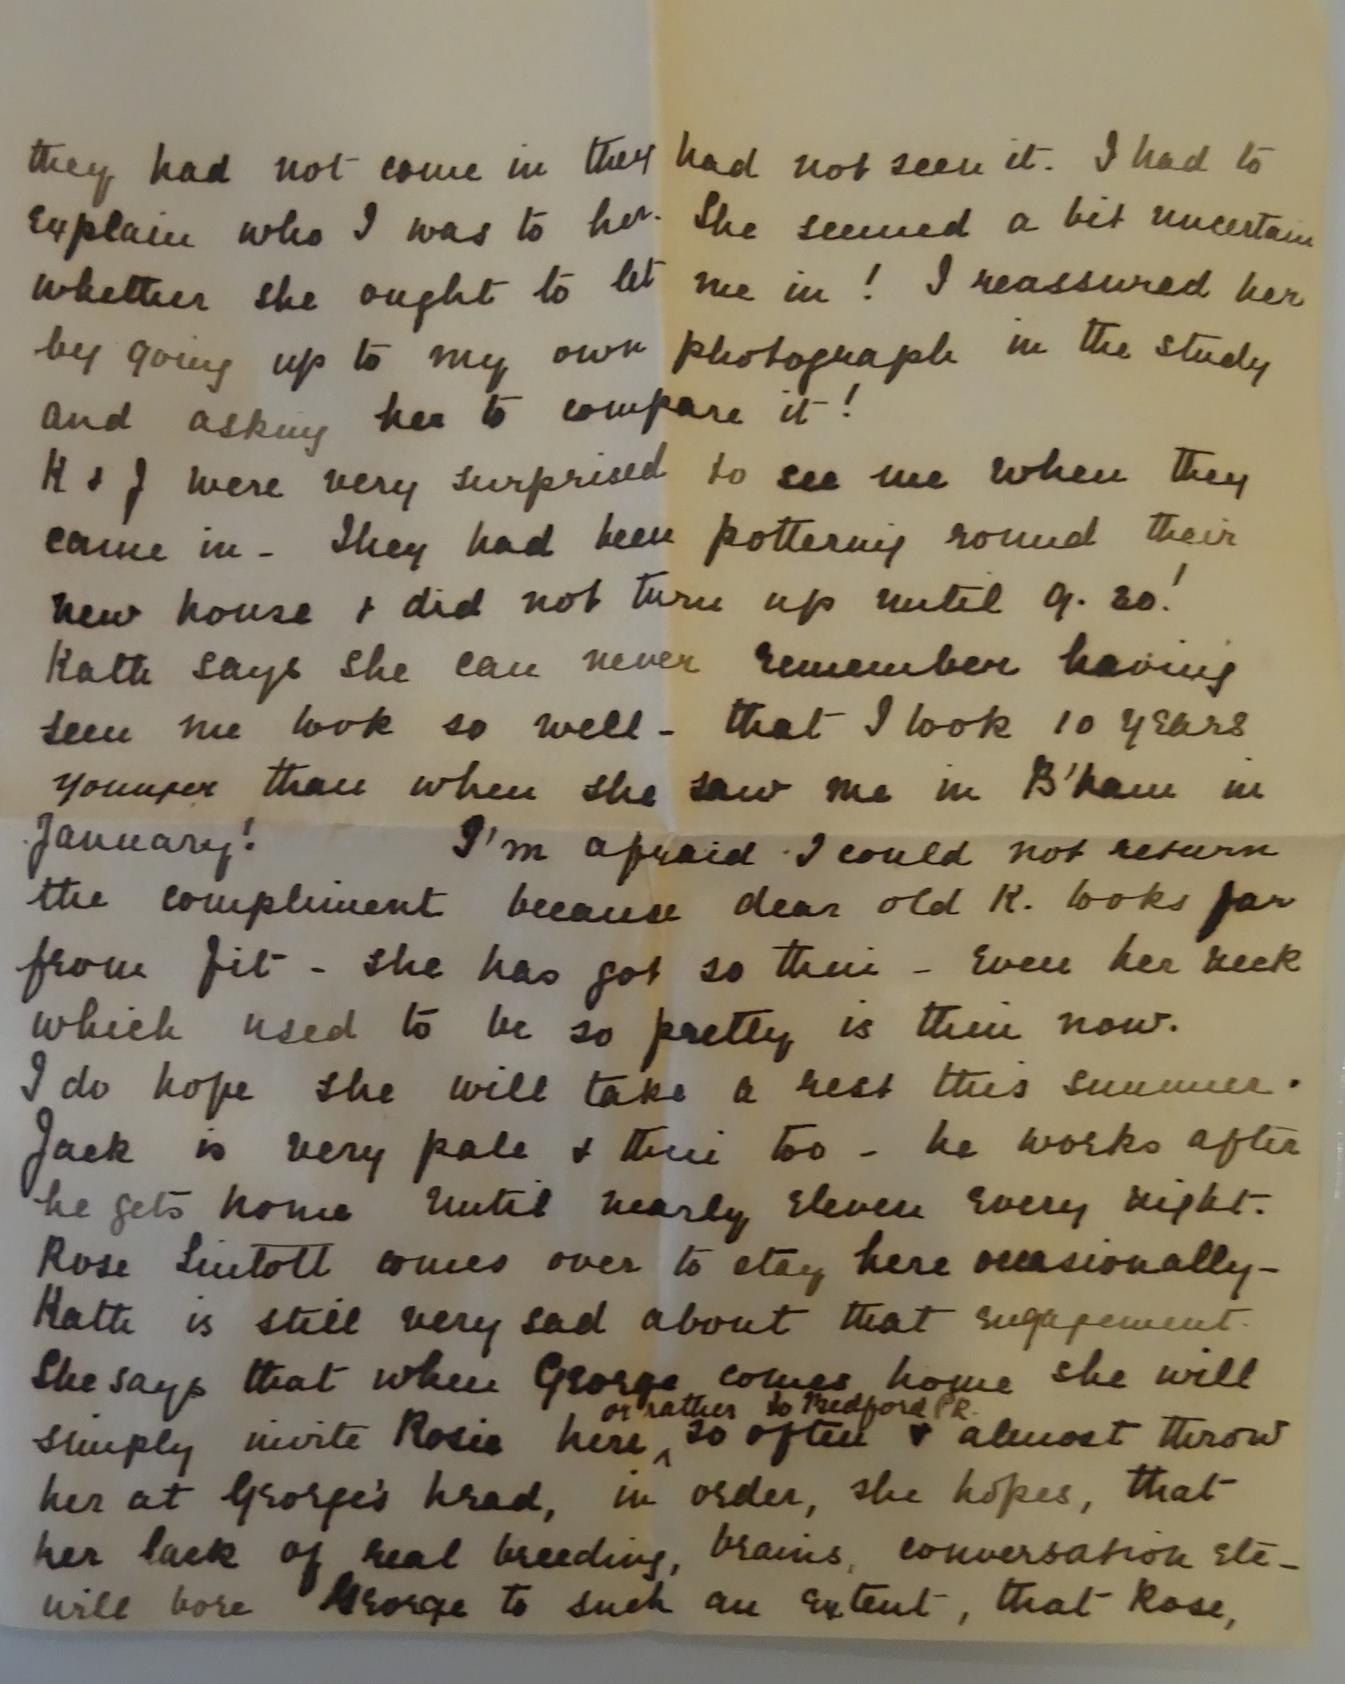 they had not come in they had not seen it. I had to
explain who I was to her. She seemed a bit uncertain
whether she ought to let me in! I reassured her
by going up to my own photograph in the study
and asking her to compare it!
K & J were very surprised to see me when they
came in - They had been pottering round their
new house & did not turn up until 9.20!
Kath says she can never remember having
seen me look so well - that I look 10 years
younger than when she saw me in B'ham in
January! I'm afraid I could not return
the compliment because dear old K. looks far
from fit - she has got so thin - even her neck
which used to be so pretty is thin now.
I do hope she will take a rest this summer.
Jack is very pale & thin too - he works after
he gets home until nearly eleven every night.
Rose Lintott comes over to stay here occasionally -
Kath is still very sad about that engagement.
She says that when George comes home she will
or rather to Bedford PK.
simply invite Rosie here so often & almost throw
her at George's head, in order, she hopes, that
her lack of real breeding, brains, conversation etc -
will bore George to such an extent, that Rose,